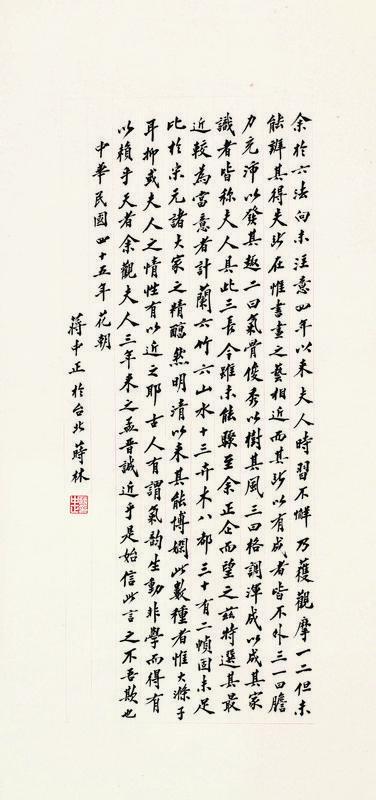 余於六法向未注意四年以來夫人時習不懈乃獲觀摩一二但未
能辨其得失所在惟書畫之藝相近而其所以有成者皆不外三一曰膽
力充沛以發其趣二曰氣骨俊秀以樹其風三曰格調渾成以成其家
識者皆稱夫人具此三長今雖未能驟至余正企而望之茲特選其最
近較為當意者計蘭六竹六山水十三卉木八都三十有二幀固未足
比於宋元諸大家之精醇然明清以來其能博嫻此數種者惟大滌子
耳抑或夫人之情性有以近之耶古人有謂氣韵生動非學而得有
以賴乎天者余觀夫人三年來之孟晉誠近乎是始信此言之不吾欺也
中華民國四十五年花朝
蔣中正於台北蒔林